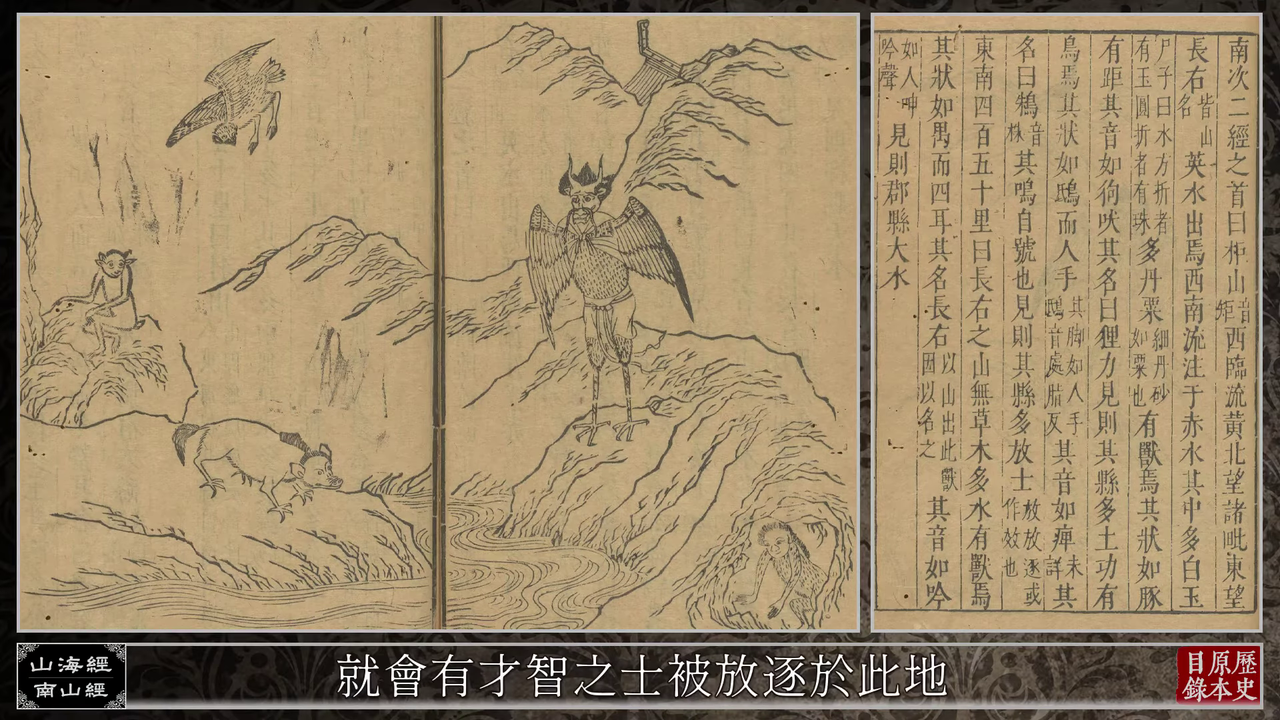 南次二經之首曰柜山音矩西臨流黃北望諸毗東望
長右皆山名英水出焉西南流注于赤水其中多白玉
尸子曰水方折者有玉圓折者有珠多丹粟細丹砂如粟也有獸焉其狀如豚
有距其音如狗吠其名曰貍力見則其縣多土功有
鳥焉其狀如鴟而人手其脚如人手鴟音處脂反其音如痺未詳其
名曰鴸音株其鳴自號也見則其縣多放士放放逐或作效也
東南四百五十里曰長右之山無草木多水有獸焉
其狀如禺而四耳其名長右以山出此獸因以名之其音如吟
如人呻吟聲見則郡縣大水
山海經
南山經
就會有才智之士被放逐於此地
歷史
原本
目錄